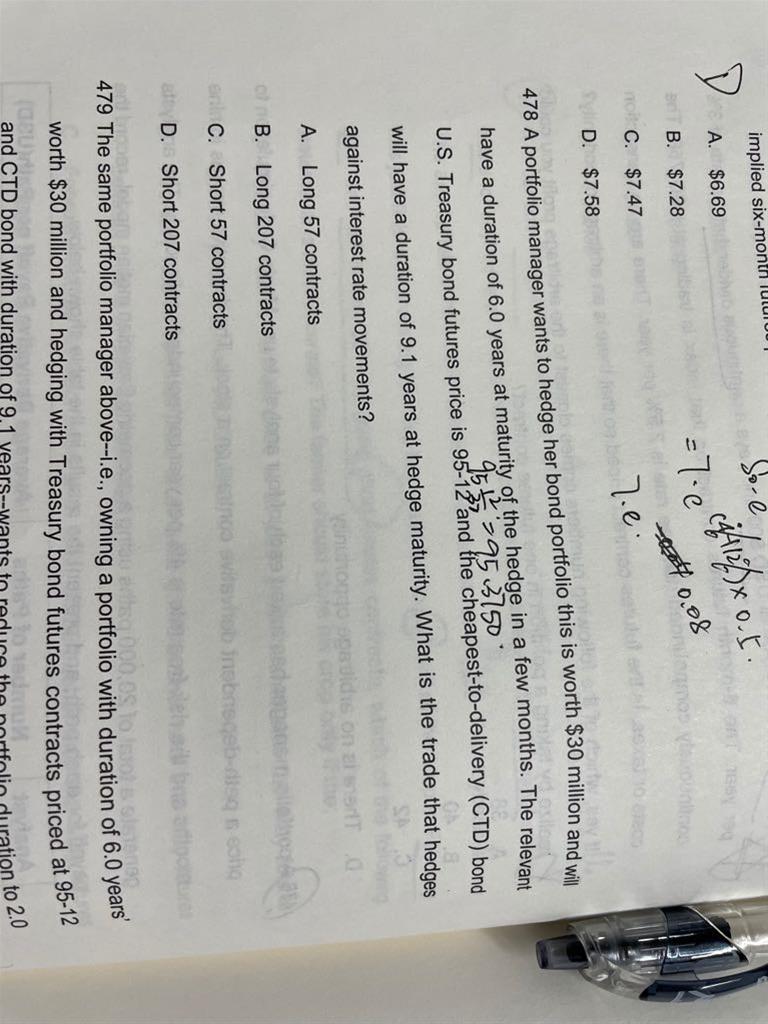 implied six-month
S₀·e
(4%+12%)×0.5.
D
A. $6.69
= 7·e
0.08
B. $7.28
7.e.
C. $7.47
D. $7.58
478 A portfolio manager wants to hedge her bond portfolio this is worth $30 million and will
have a duration of 6.0 years at maturity of the hedge in a few months. The relevant
95 12/32 = 95.3750.
U.S. Treasury bond futures price is 95-12 and the cheapest-to-delivery (CTD) bond
will have a duration of 9.1 years at hedge maturity. What is the trade that hedges
against interest rate movements?
A. Long 57 contracts
B. Long 207 contracts
C. Short 57 contracts
D. Short 207 contracts
479 The same portfolio manager above--i.e., owning a portfolio with duration of 6.0 years'
worth $30 million and hedging with Treasury bond futures contracts priced at 95-12
and CTD bond with duration of 9.1 years--wants to reduce the portfolio duration to 2.0